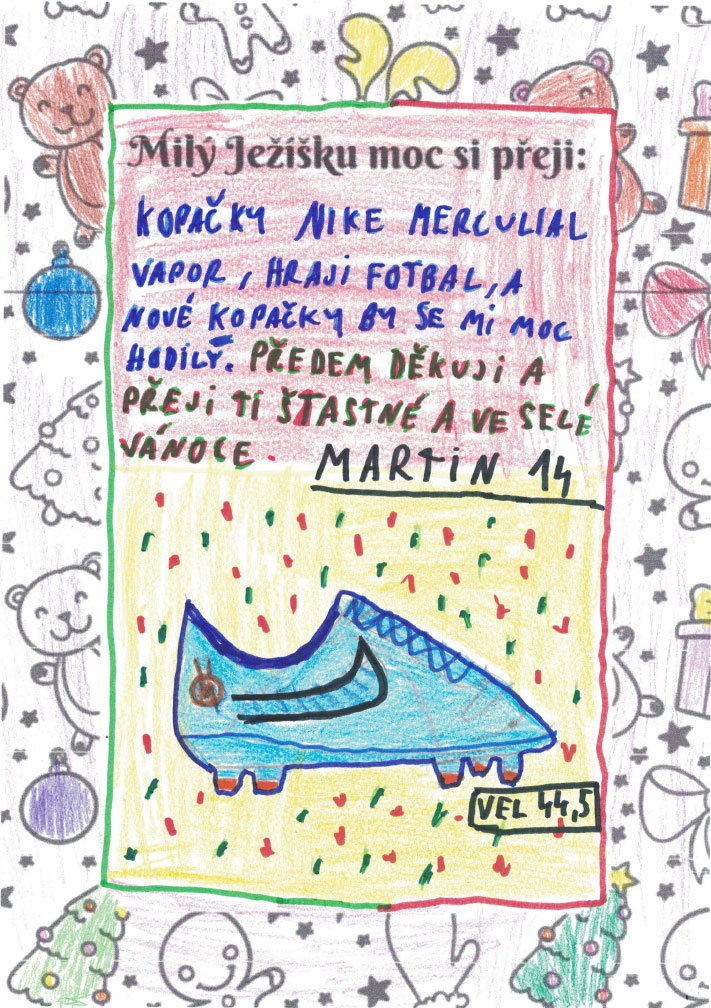 Milý Ježíšku moc si přeji:
KOPAČKY NIKE MERCULIAL
VAPOR, HRAJI FOTBAL, A
NOVÉ KOPAČKY BY SE MI MOC
HODILY. PŘEDEM DĚKUJI A
PŘEJI TI ŠTASTNÉ A VESELÉ
VÁNOCE.
MARTIN 14
VEL 44,5